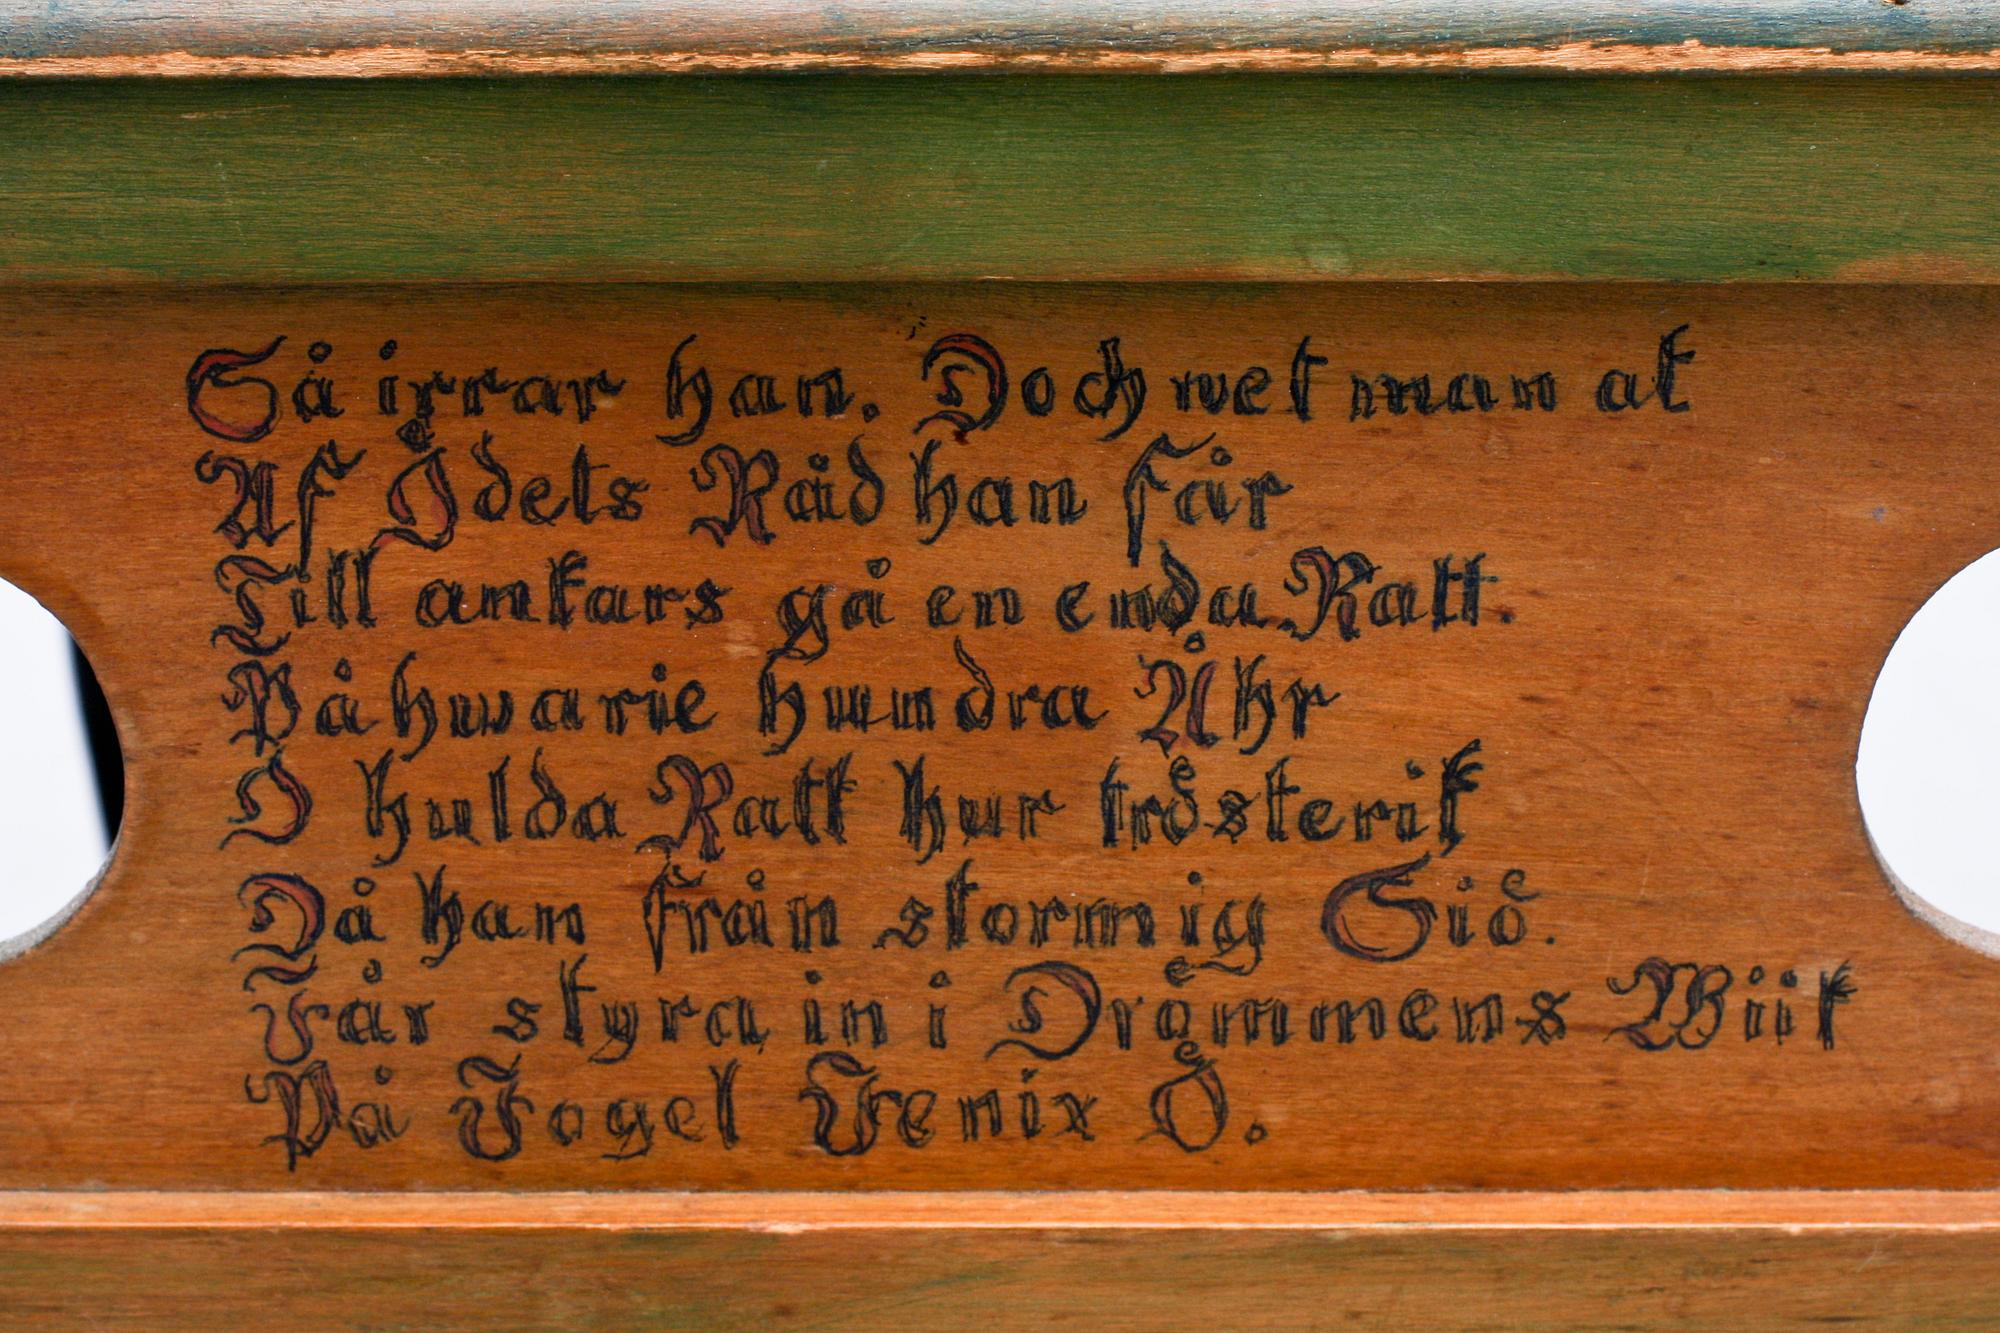 Så irrar han. Doch wet man at
Af Ödets Råd han får
Till ankars gå en enda Natt.
På hwarie hundra Åhr
O hulda Natt hur trösterik
Då han från stormig Siö.
Får styra in i Drömmens Wiik
På Fogel Fenix Ö.